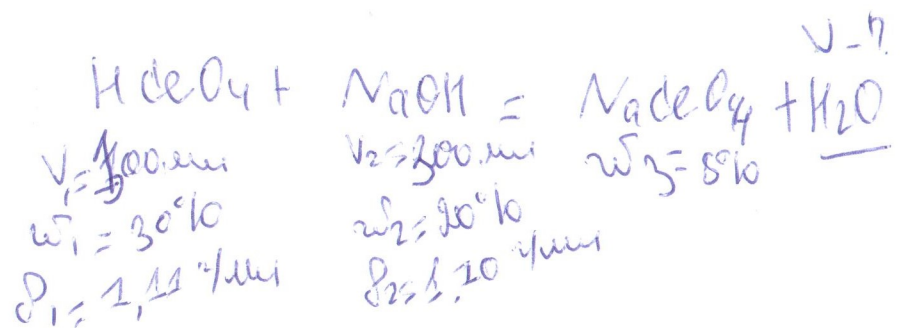 V-?
HClO4 + NaOH = NaClO4 + H2O
V2=300мл ω3=8%
ω1=30% ω2=20%
ρ1=1,11 г/мл ρ2=1,10 г/мл